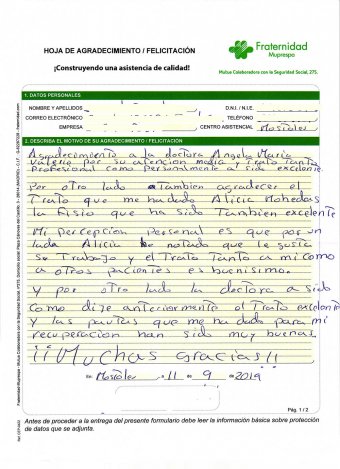 HOJA DE AGRADECIMIENTO / FELICITACIÓN
¡Construyendo una asistencia de calidad!
Fraternidad
Muprespa
Mutua Colaboradora con la Seguridad Social, 275.
1. DATOS PERSONALES
NOMBRE Y APELLIDOS
D.N.I. / N.I.E.
CORREO ELECTRÓNICO
TELÉFONO
EMPRESA
CENTRO ASISTENCIAL Mostoles
2. DESCRIBA EL MOTIVO DE SU AGRADECIMIENTO / FELICITACIÓN
Agradecimiento a la doctora Angela Maria
Valerio por su atención media y Trato Tanto
Profesional como personalmente a sido excelente.
Por otro lado Tambien agradecer el
Trato que me ha dado Alicia Mohedas
la Fisio que ha sido Tambien excelente
Mi percepcion personal es que por un
lado Alicia he notado que le gusta
su Trabajo y el Trato Tanto a mi como
a otros pacientes es buenisimo.
Y por otro lado la doctora a sido
como dije anteriormente el Trato excelente
y las pautas que me ha dado para mi
recuperacion han sido muy buenas.
¡¡Muchas gracias!!
En Mostoles a 11 de 9 de 2019
Pág. 1 / 2
Antes de proceder a la entrega del presente formulario debe leer la información básica sobre protección
de datos que se adjunta.